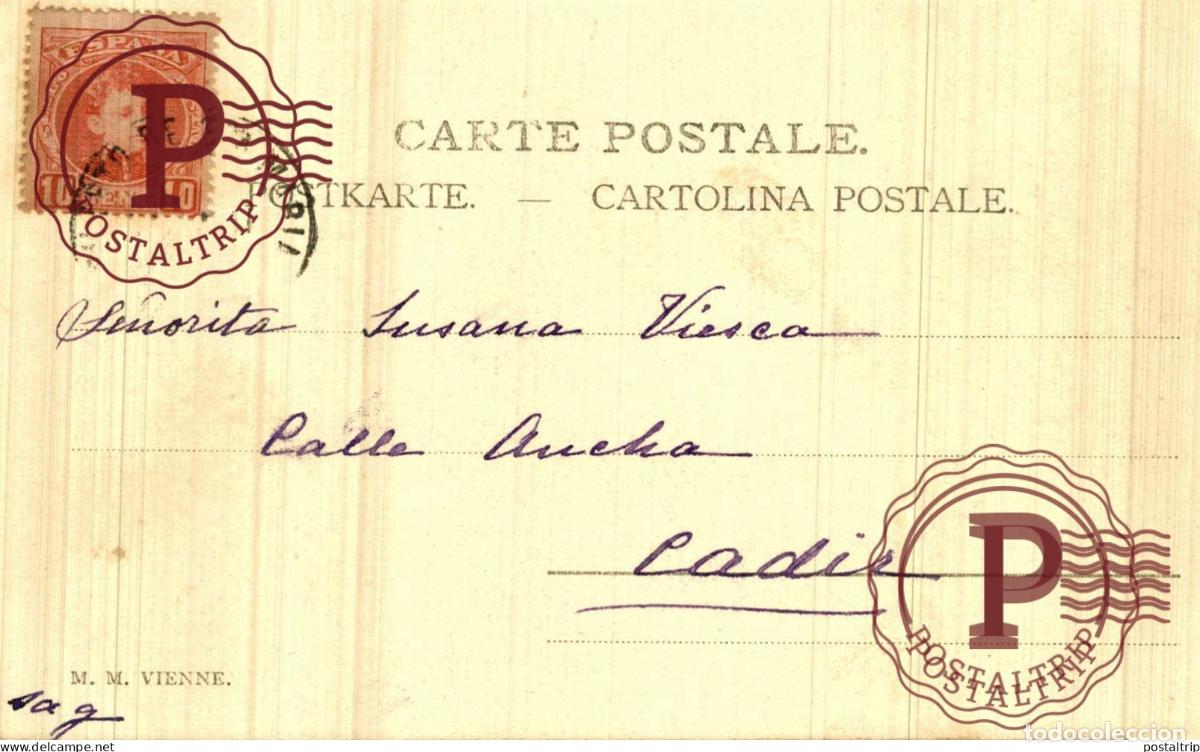 ESPAÑA
CARTE POSTALE.
POSTKARTE. — CARTOLINA POSTALE.
POSTALTRIP
Señorita Susana Viesca
Calle Ancha
Cadiz
POSTALTRIP
M. M. VIENNE.
todocoleccion
www.postaltrip.net
postaltrip